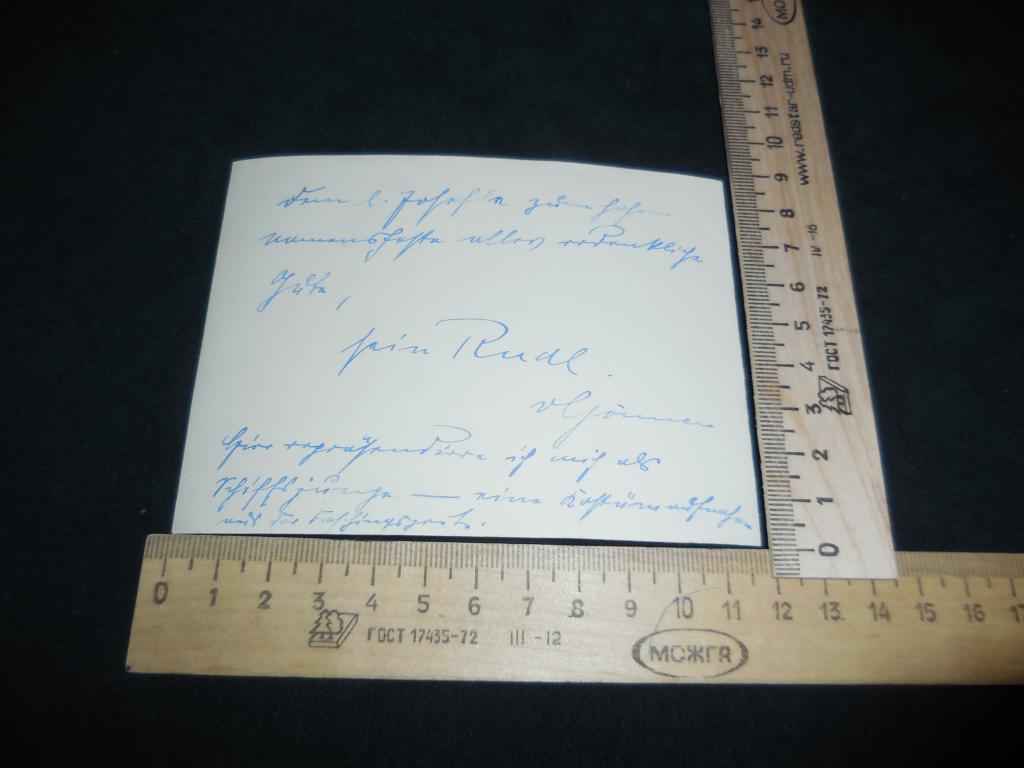 Dem l. Josefle zum hohen
Namensfeste alles erdenkliche
Gute,
sein Rudl.
Hier repräsendiere ich mich als
Schiffsjunge — eine Kostümaufnahme
aus der Faschingszeit.
0 1 2 3 4 5 6 7 8 9 10 11 12 13 14 15 16 17
ГОСТ 17435-72 III -12
МОЖГА
0 1 2 3 4 5 6 7 8 9 10 11 12 13 14
ГОСТ 17435-72 IV -16
www.redstar-udm.ru
МО